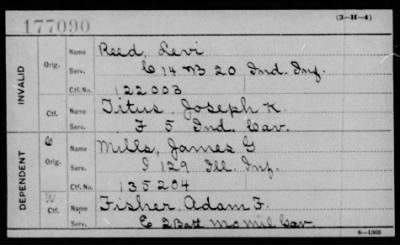 177090
(3-H-4)
INVALID
Orig.
Name Reed, Levi
Serv. C 14 20 Ind. Inf.
Ctf. No. 122003
Ctf.
Name Titus, Joseph K.
Serv. F 5 Ind. Cav.
DEPENDENT
C
Orig.
Name Mills, James G
Serv. I 129 Ill. Inf.
Ctf. No. 135204
W
Ctf.
Name Fisher Adam F.
Serv. E 2 Batt Mo Mil Cav.
6-1303